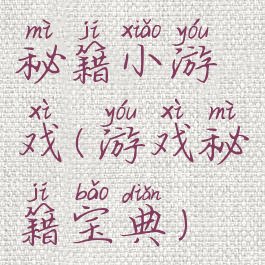 mì jí xiǎo yóu
秘籍小游
xì yóu xì mì
戏(游戏秘
jí bǎo diǎn
籍宝典)